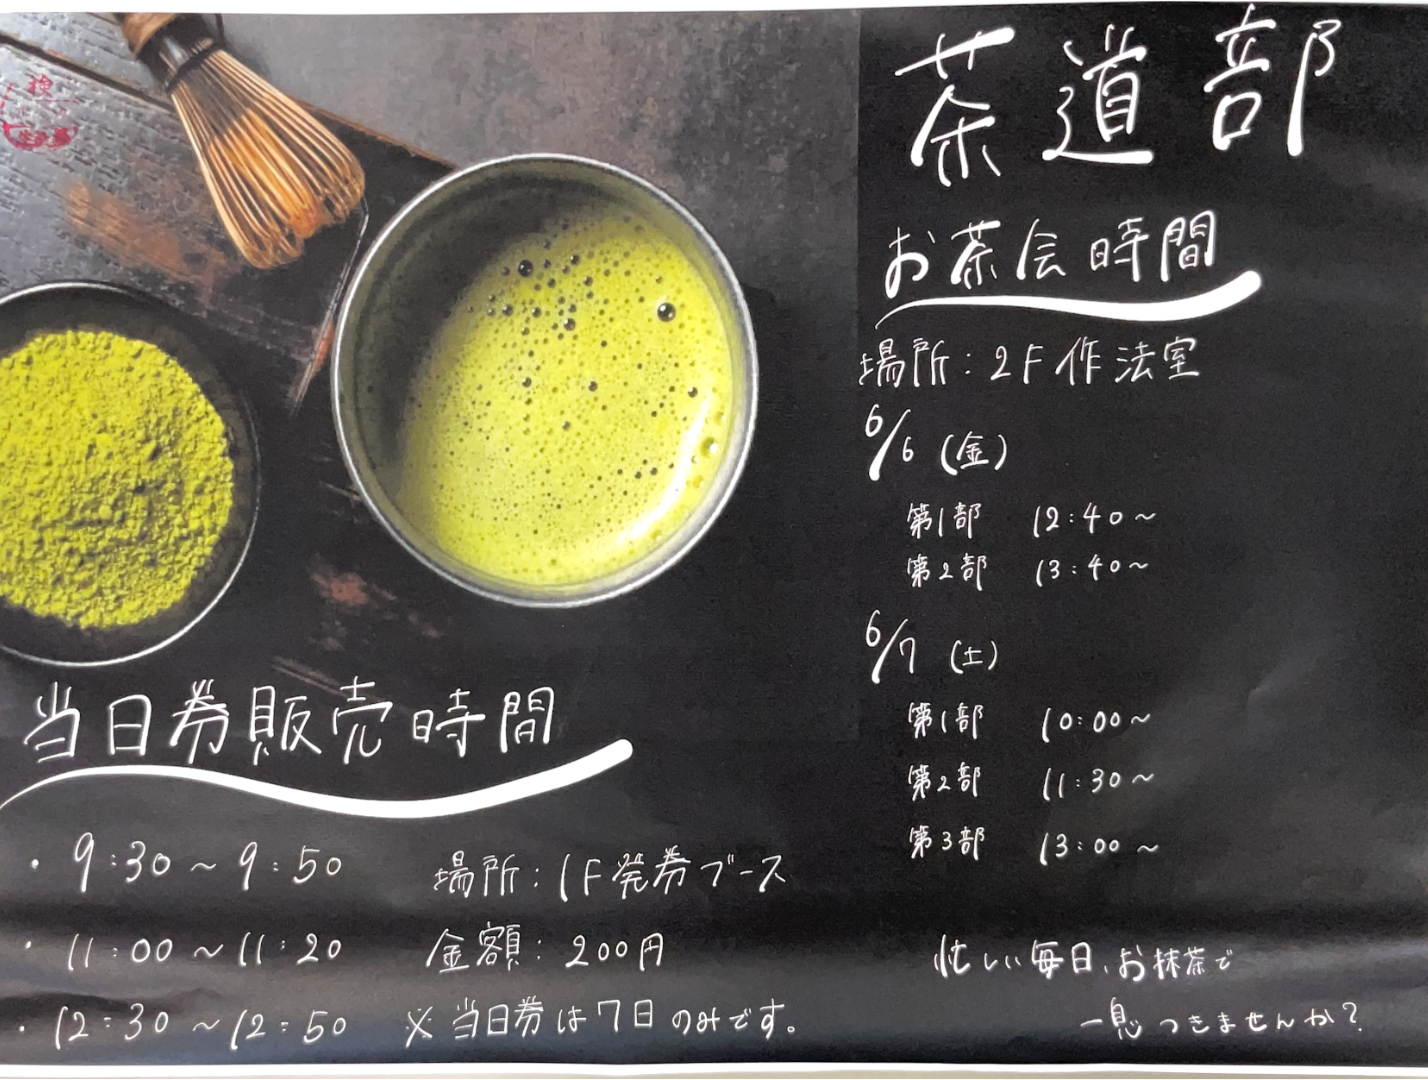 茶道部
お茶会時間
場所：2F作法室
6/6（金）
第1部 12:40～
第2部 13:40～
6/7（土）
第1部 10:00～
第2部 11:30～
第3部 13:00～
忙しい毎日、お抹茶で
一息つきませんか？
当日券販売時間
・9:30～9:50
・11:00～11:20
・12:30～12:50
場所：1F発券ブース
金額：200円
※当日券は7日のみです。
検